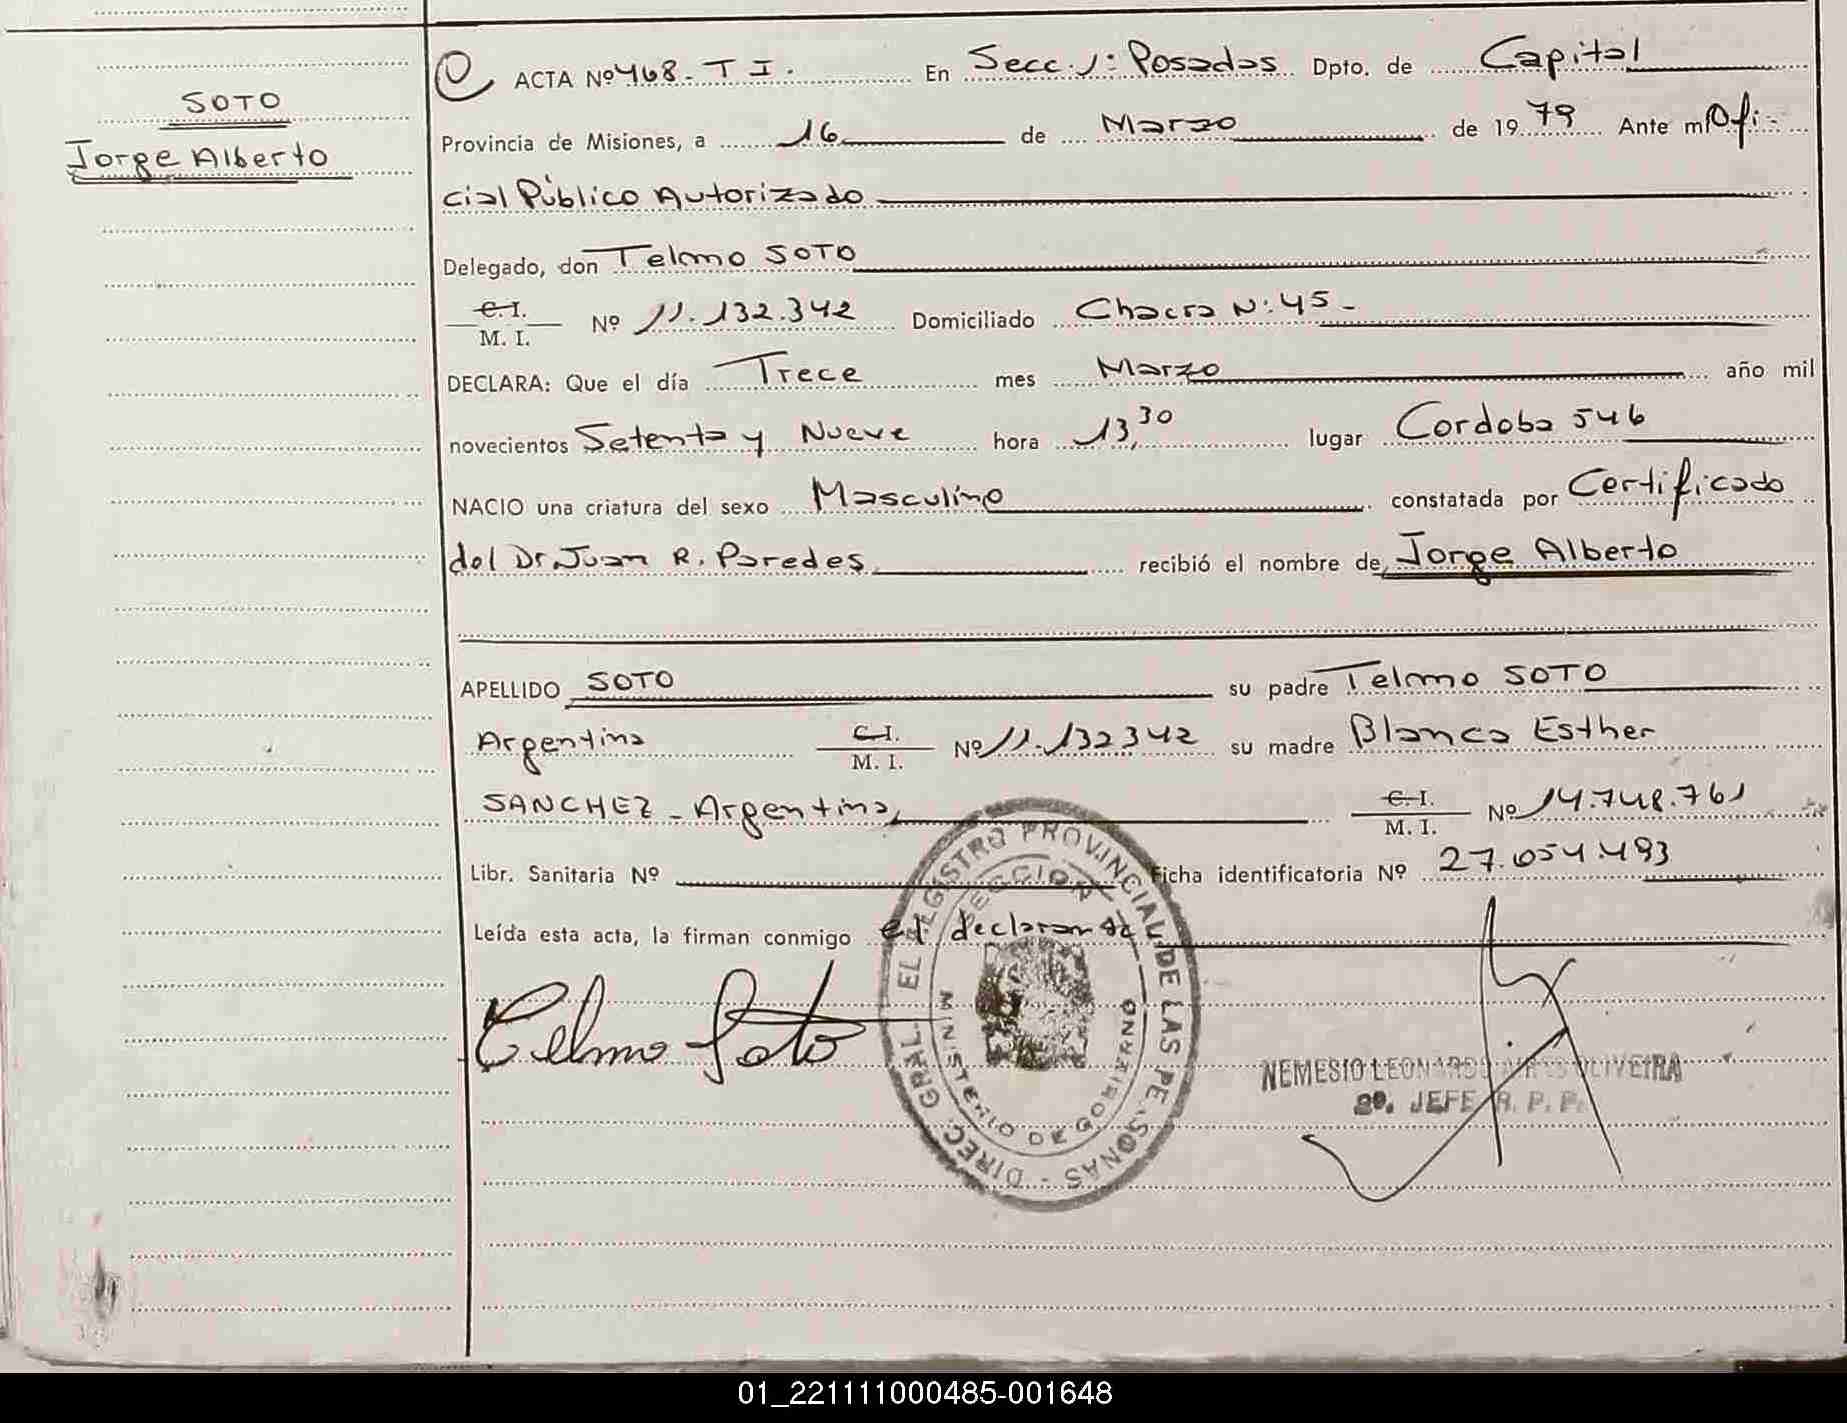 SOTO
Jorge Alberto
ACTA Nº 468. T I. En Secc. 1: Posadas Dpto. de Capital
Provincia de Misiones, a 16 de Marzo de 1979 Ante mí Ofi-
cial Público Autorizado
Delegado, don Telmo SOTO
C.I.
M. I. Nº 11.132.342 Domiciliado Chacra N: 45-
DECLARA: Que el día Trece mes Marzo año mil
novecientos Setenta y Nueve hora 13,30 lugar Cordoba 546
NACIO una criatura del sexo Masculino constatada por Certificado
del Dr. Juan R. Paredes recibió el nombre de Jorge Alberto
APELLIDO SOTO su padre Telmo SOTO
Argentino C.I.
M. I. Nº 11.132342 su madre Blanca Esther
SANCHEZ - Argentina, C.I.
M. I. Nº 14.748.761
Libr. Sanitaria Nº Ficha identificatoria Nº 27.054.493
Leída esta acta, la firman conmigo el declarante
Telmo Soto
DIREC. GRAL. EL REGISTRO PROVINCIAL DE LAS PERSONAS
SECCION
MINISTERIO DE GOBIERNO
NEMESIO LEONARDO OLIVEIRA
2º. JEFE R. P. P.
01_221111000485-001648